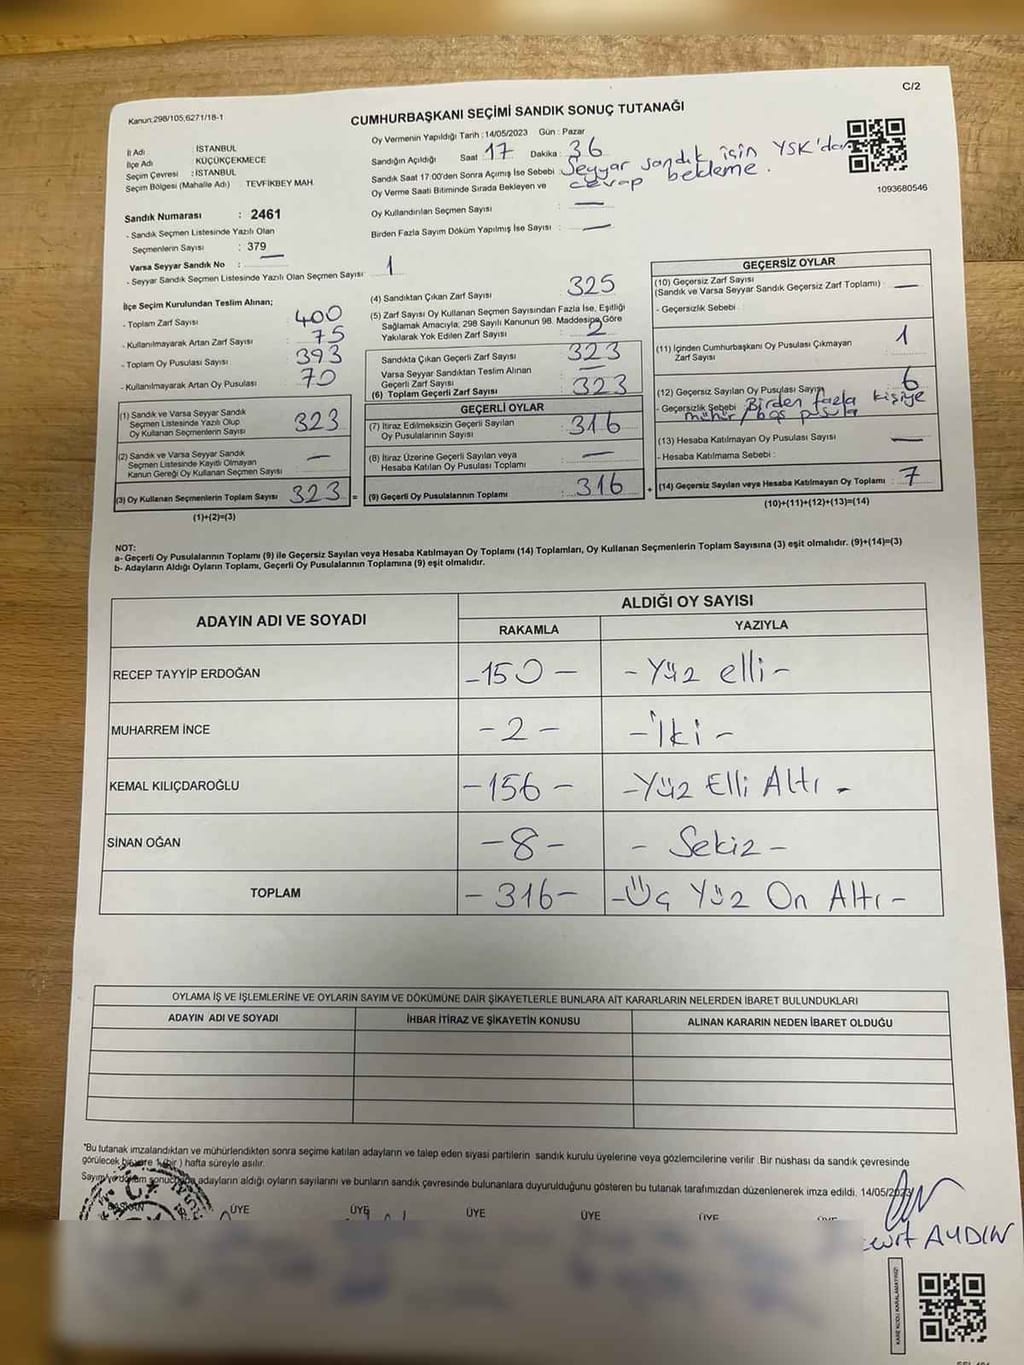 C/2
Kanun:298/105,6271/18-1
CUMHURBAŞKANI SEÇİMİ SANDIK SONUÇ TUTANAĞI
Oy Vermenin Yapıldığı Tarih : 14/05/2023 Gün : Pazar
İl Adı : İSTANBUL
İlçe Adı : KÜÇÜKÇEKMECE
Seçim Çevresi : İSTANBUL
Seçim Bölgesi (Mahalle Adı) TEVFİKBEY MAH.
Sandığın Açıldığı Saat 17 Dakika : 36
Sandık Saat 17:00'den Sonra Açılmış İse Sebebi : Seyyar sandık için YSK'dan
cevap bekleme.
Oy Verme Saati Bitiminde Sırada Bekleyen ve
Oy Kullandırılan Seçmen Sayısı : —
Birden Fazla Sayım Döküm Yapılmış İse Sayısı : —
1093680546
Sandık Numarası : 2461
- Sandık Seçmen Listesinde Yazılı Olan
Seçmenlerin Sayısı : 379
Varsa Seyyar Sandık No : —
- Seyyar Sandık Seçmen Listesinde Yazılı Olan Seçmen Sayısı : 1
İlçe Seçim Kurulundan Teslim Alınan;
- Toplam Zarf Sayısı : 400
- Kullanılmayarak Artan Zarf Sayısı : 75
- Toplam Oy Pusulası Sayısı : 393
- Kullanılmayarak Artan Oy Pusulası : 70
(1) Sandık ve Varsa Seyyar Sandık
Seçmen Listesinde Yazılı Olup
Oy Kullanan Seçmenlerin Sayısı 323
(2) Sandık ve Varsa Seyyar Sandık
Seçmen Listesinde Kayıtlı Olmayan
Kanun Gereği Oy Kullanan Seçmen Sayısı : —
(3) Oy Kullanan Seçmenlerin Toplam Sayısı 323 =
(1)+(2)=(3)
(4) Sandıktan Çıkan Zarf Sayısı 325
(5) Zarf Sayısı Oy Kullanan Seçmen Sayısından Fazla İse, Eşitliği
Sağlamak Amacıyla; 298 Sayılı Kanunun 98. Maddesine Göre
Yakılarak Yok Edilen Zarf Sayısı : 2
Sandıkta Çıkan Geçerli Zarf Sayısı : 323
Varsa Seyyar Sandıktan Teslim Alınan
Geçerli Zarf Sayısı : —
(6) Toplam Geçerli Zarf Sayısı : 323
GEÇERLİ OYLAR
(7) İtiraz Edilmeksizin Geçerli Sayılan
Oy Pusulalarının Sayısı : 316
(8) İtiraz Üzerine Geçerli Sayılan veya
Hesaba Katılan Oy Pusulası Toplamı : —
(9) Geçerli Oy Pusulalarının Toplamı : 316 +
GEÇERSİZ OYLAR
(10) Geçersiz Zarf Sayısı
(Sandık ve Varsa Seyyar Sandık Geçersiz Zarf Toplamı) : —
- Geçersizlik Sebebi :
(11) İçinden Cumhurbaşkanı Oy Pusulası Çıkmayan
Zarf Sayısı : 1
(12) Geçersiz Sayılan Oy Pusulası Sayısı 6
- Geçersizlik Sebebi : Birden fazla kişiye
mühür / boş pusula
(13) Hesaba Katılmayan Oy Pusulası Sayısı : —
- Hesaba Katılmama Sebebi :
(14) Geçersiz Sayılan veya Hesaba Katılmayan Oy Toplamı : 7
(10)+(11)+(12)+(13)=(14)
NOT:
a- Geçerli Oy Pusulalarının Toplamı (9) ile Geçersiz Sayılan veya Hesaba Katılmayan Oy Toplamı (14) Toplamları, Oy Kullanan Seçmenlerin Toplam Sayısına (3) eşit olmalıdır. (9)+(14)=(3)
b- Adayların Aldığı Oyların Toplamı, Geçerli Oy Pusulalarının Toplamına (9) eşit olmalıdır.
ADAYIN ADI VE SOYADI
ALDIĞI OY SAYISI
RAKAMLA YAZIYLA
RECEP TAYYİP ERDOĞAN -150- -Yüz elli-
MUHARREM İNCE -2- -İki-
KEMAL KILIÇDAROĞLU -156- -Yüz Elli Altı-
SİNAN OĞAN -8- -Sekiz-
TOPLAM -316- -Üç Yüz On Altı-
OYLAMA İŞ VE İŞLEMLERİNE VE OYLARIN SAYIM VE DÖKÜMÜNE DAİR ŞİKAYETLERLE BUNLARA AİT KARARLARIN NELERDEN İBARET BULUNDUKLARI
ADAYIN ADI VE SOYADI İHBAR İTİRAZ VE ŞİKAYETİN KONUSU ALINAN KARARIN NEDEN İBARET OLDUĞU
"Bu tutanak imzalandıktan ve mühürlendikten sonra seçime katılan adayların ve talep eden siyasi partilerin sandık kurulu üyelerine veya gözlemcilerine verilir. Bir nüshası da sandık çevresinde
görülecek bir yere 1 (bir) hafta süreyle asılır.
Sayım ve döküm sonucunda adayların aldığı oyların sayılarını ve bunların sandık çevresinde bulunanlara duyurulduğunu gösteren bu tutanak tarafımızdan düzenlenerek imza edildi. 14/05/2023
BAŞKAN ÜYE ÜYE ÜYE ÜYE ÜYE ÜYE
AYDIN
KARE KODU KARALAMAYINIZ!